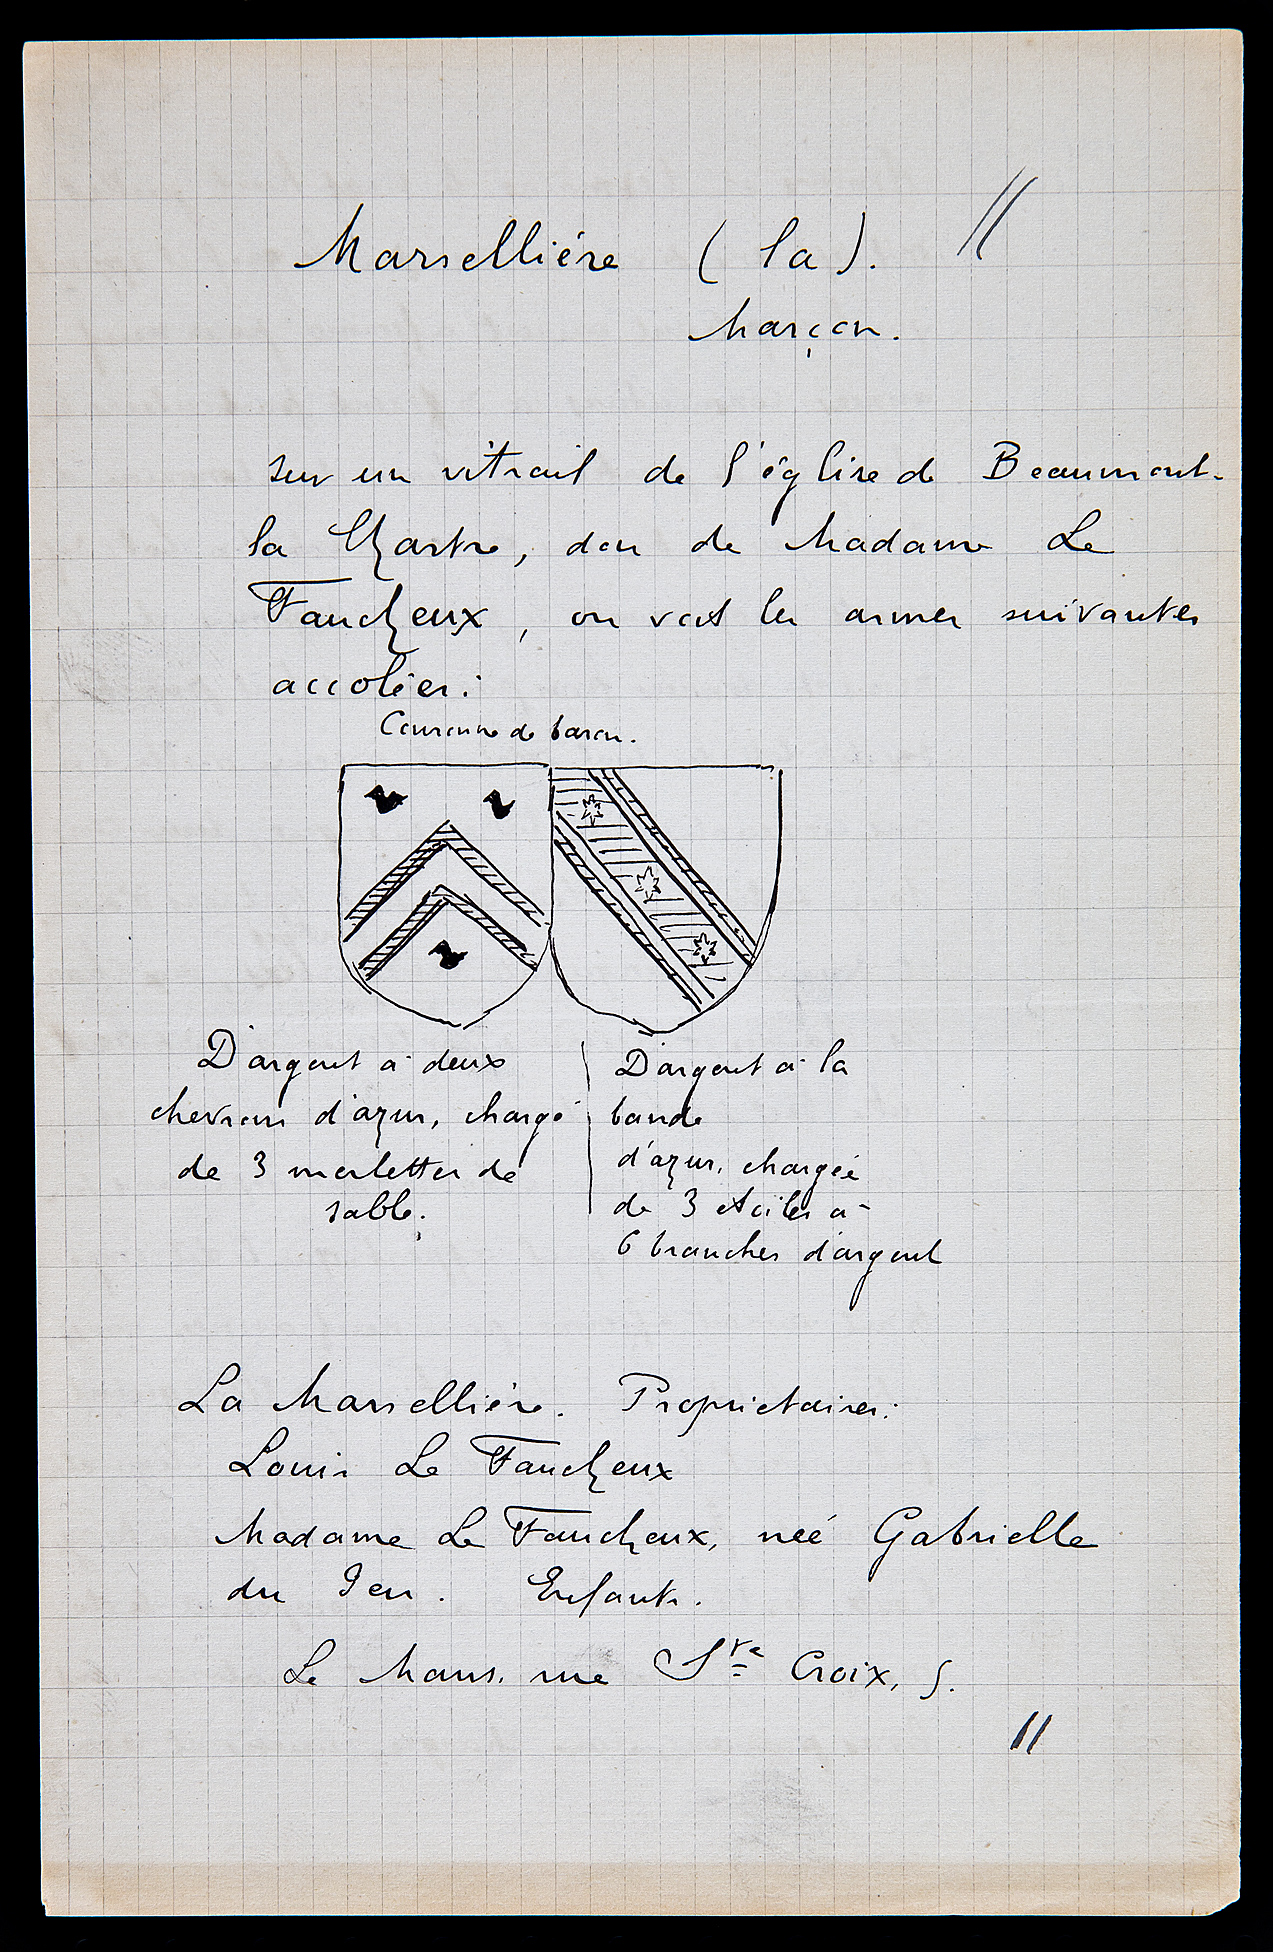 Marsellière (la).
Marçon.
sur un vitrail de l'église de Beaumont-
la Chartre, don de Madame Le
Faucheux, on voit les armes suivantes
accolées :
Couronne de baron.
D'argent à deux
chevrons d'azur, chargé
de 3 merlettes de
sable.
D'argent à la
bande
d'azur, chargée
de 3 étoiles à
6 branches d'argent
La Marsellière. Propriétaires :
Louis Le Faucheux
Madame Le Faucheux, née Gabrielle
du Jeu. Enfants.
Le Mans, rue Ste Croix, 5.